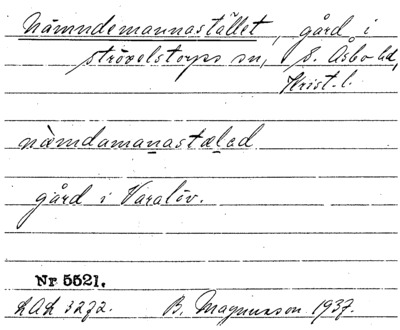 Nämndemannastället, gård i
Strövelstorps sn, S. Åsbo hd,
Krist. l.
næmdamanastælad
gård i Varalöv.
Nr 5521.
LAL 3272. B. Magnusson 1937.